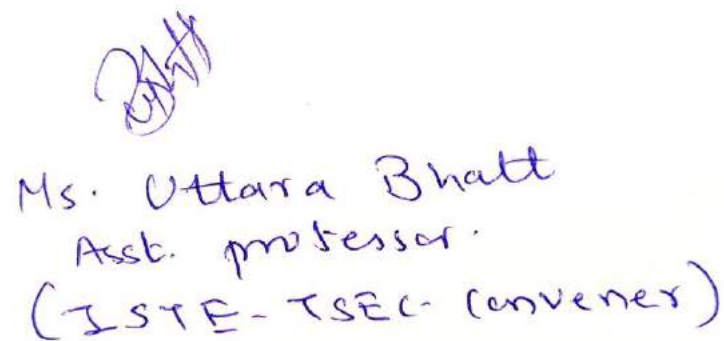 Ms. Uttara Bhatt
Asst. professor.
(ISTE-TSEC- Convener)